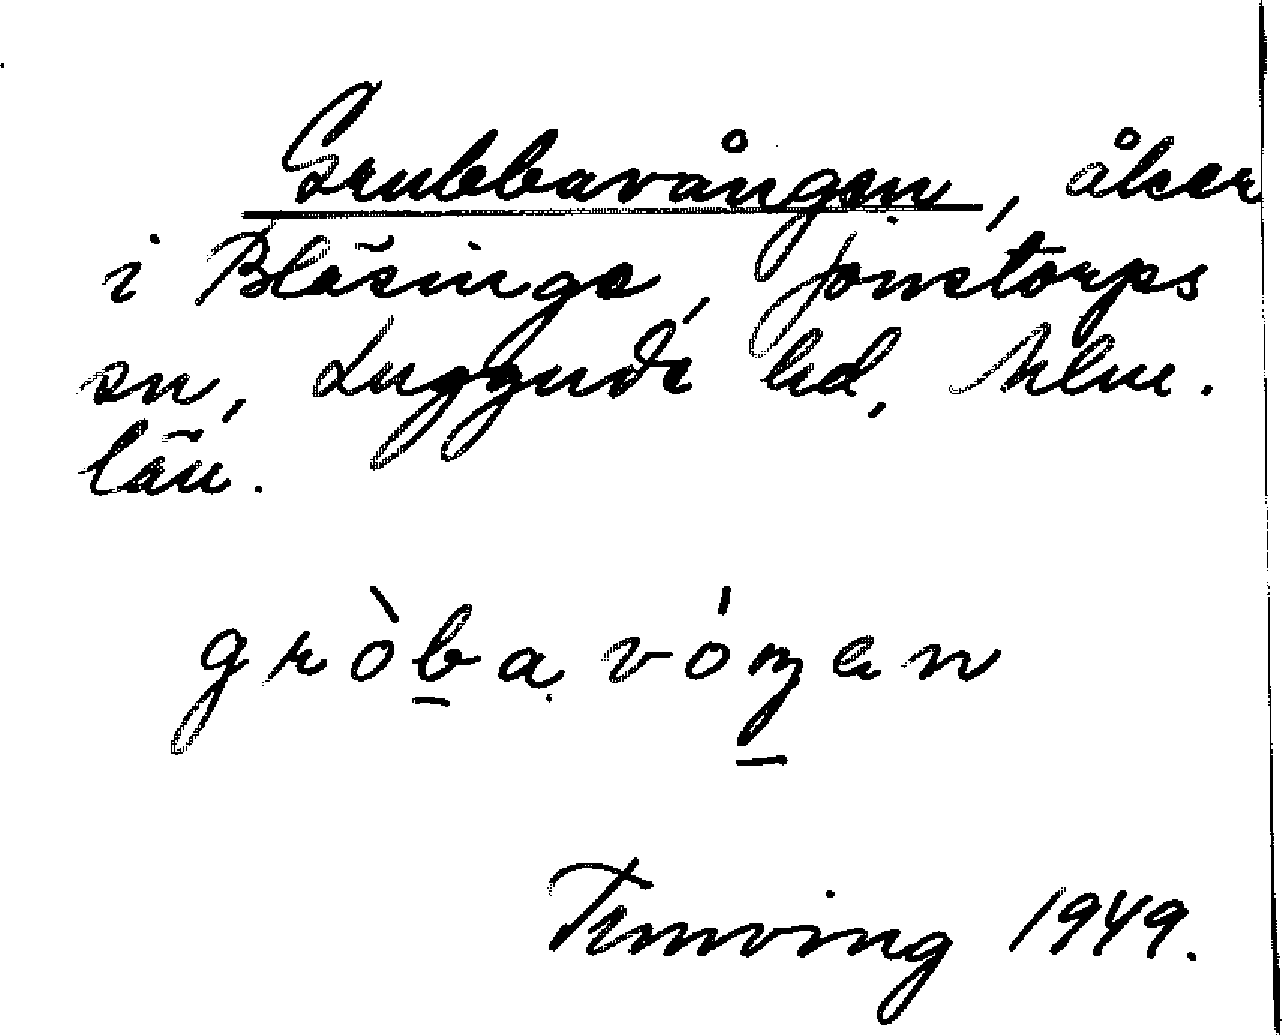 Grubbavången, åker
i Bläsinge, Jonstorps
sn, Luggude hd, Mlm.
län.
gròba vóŋen
Ternving 1949.